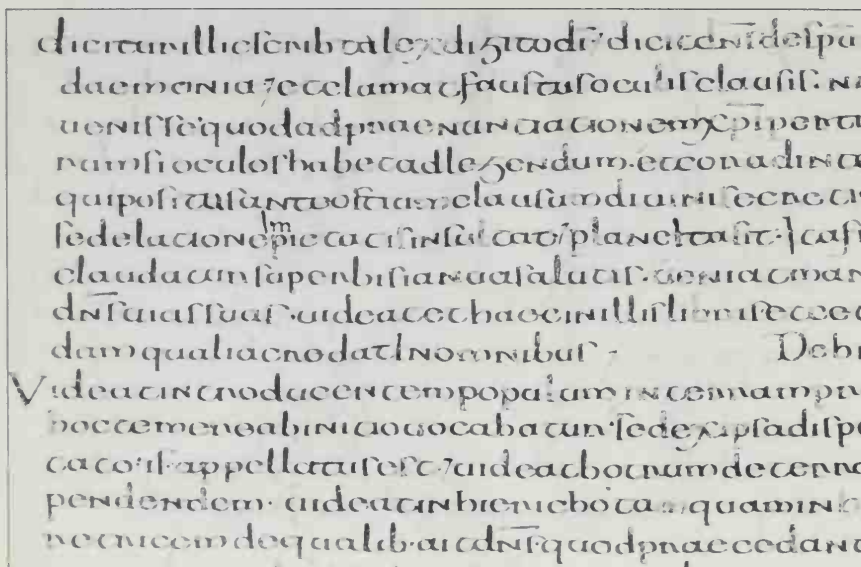 dicitur illic scribta lex digito di; dicit enim de spu
daemonia; et clamat faustus oculis clausis. N
uenisse quod ad praenuntiationem xpi perti
rum si oculos habet ad legendum. et cor n ad int
qui positus ante ostium clausum diuini secreti
sed elatione impietatis insultat; plane ita sit.
claudatur superbis ianua salutis. ueniat man
dns uias suas. uideat et haec in illis libris et cet
dam qualia credat in omnibus.
Videat introducentem populum in terram pr
hoc temere ab initio uocabatur. sed ex ipsa dispe
tato appellatus est; uideat botrum de terra
pendentem. uideat in hiericho tamquam in
retricem de qualib. ait dns. quod praecedant